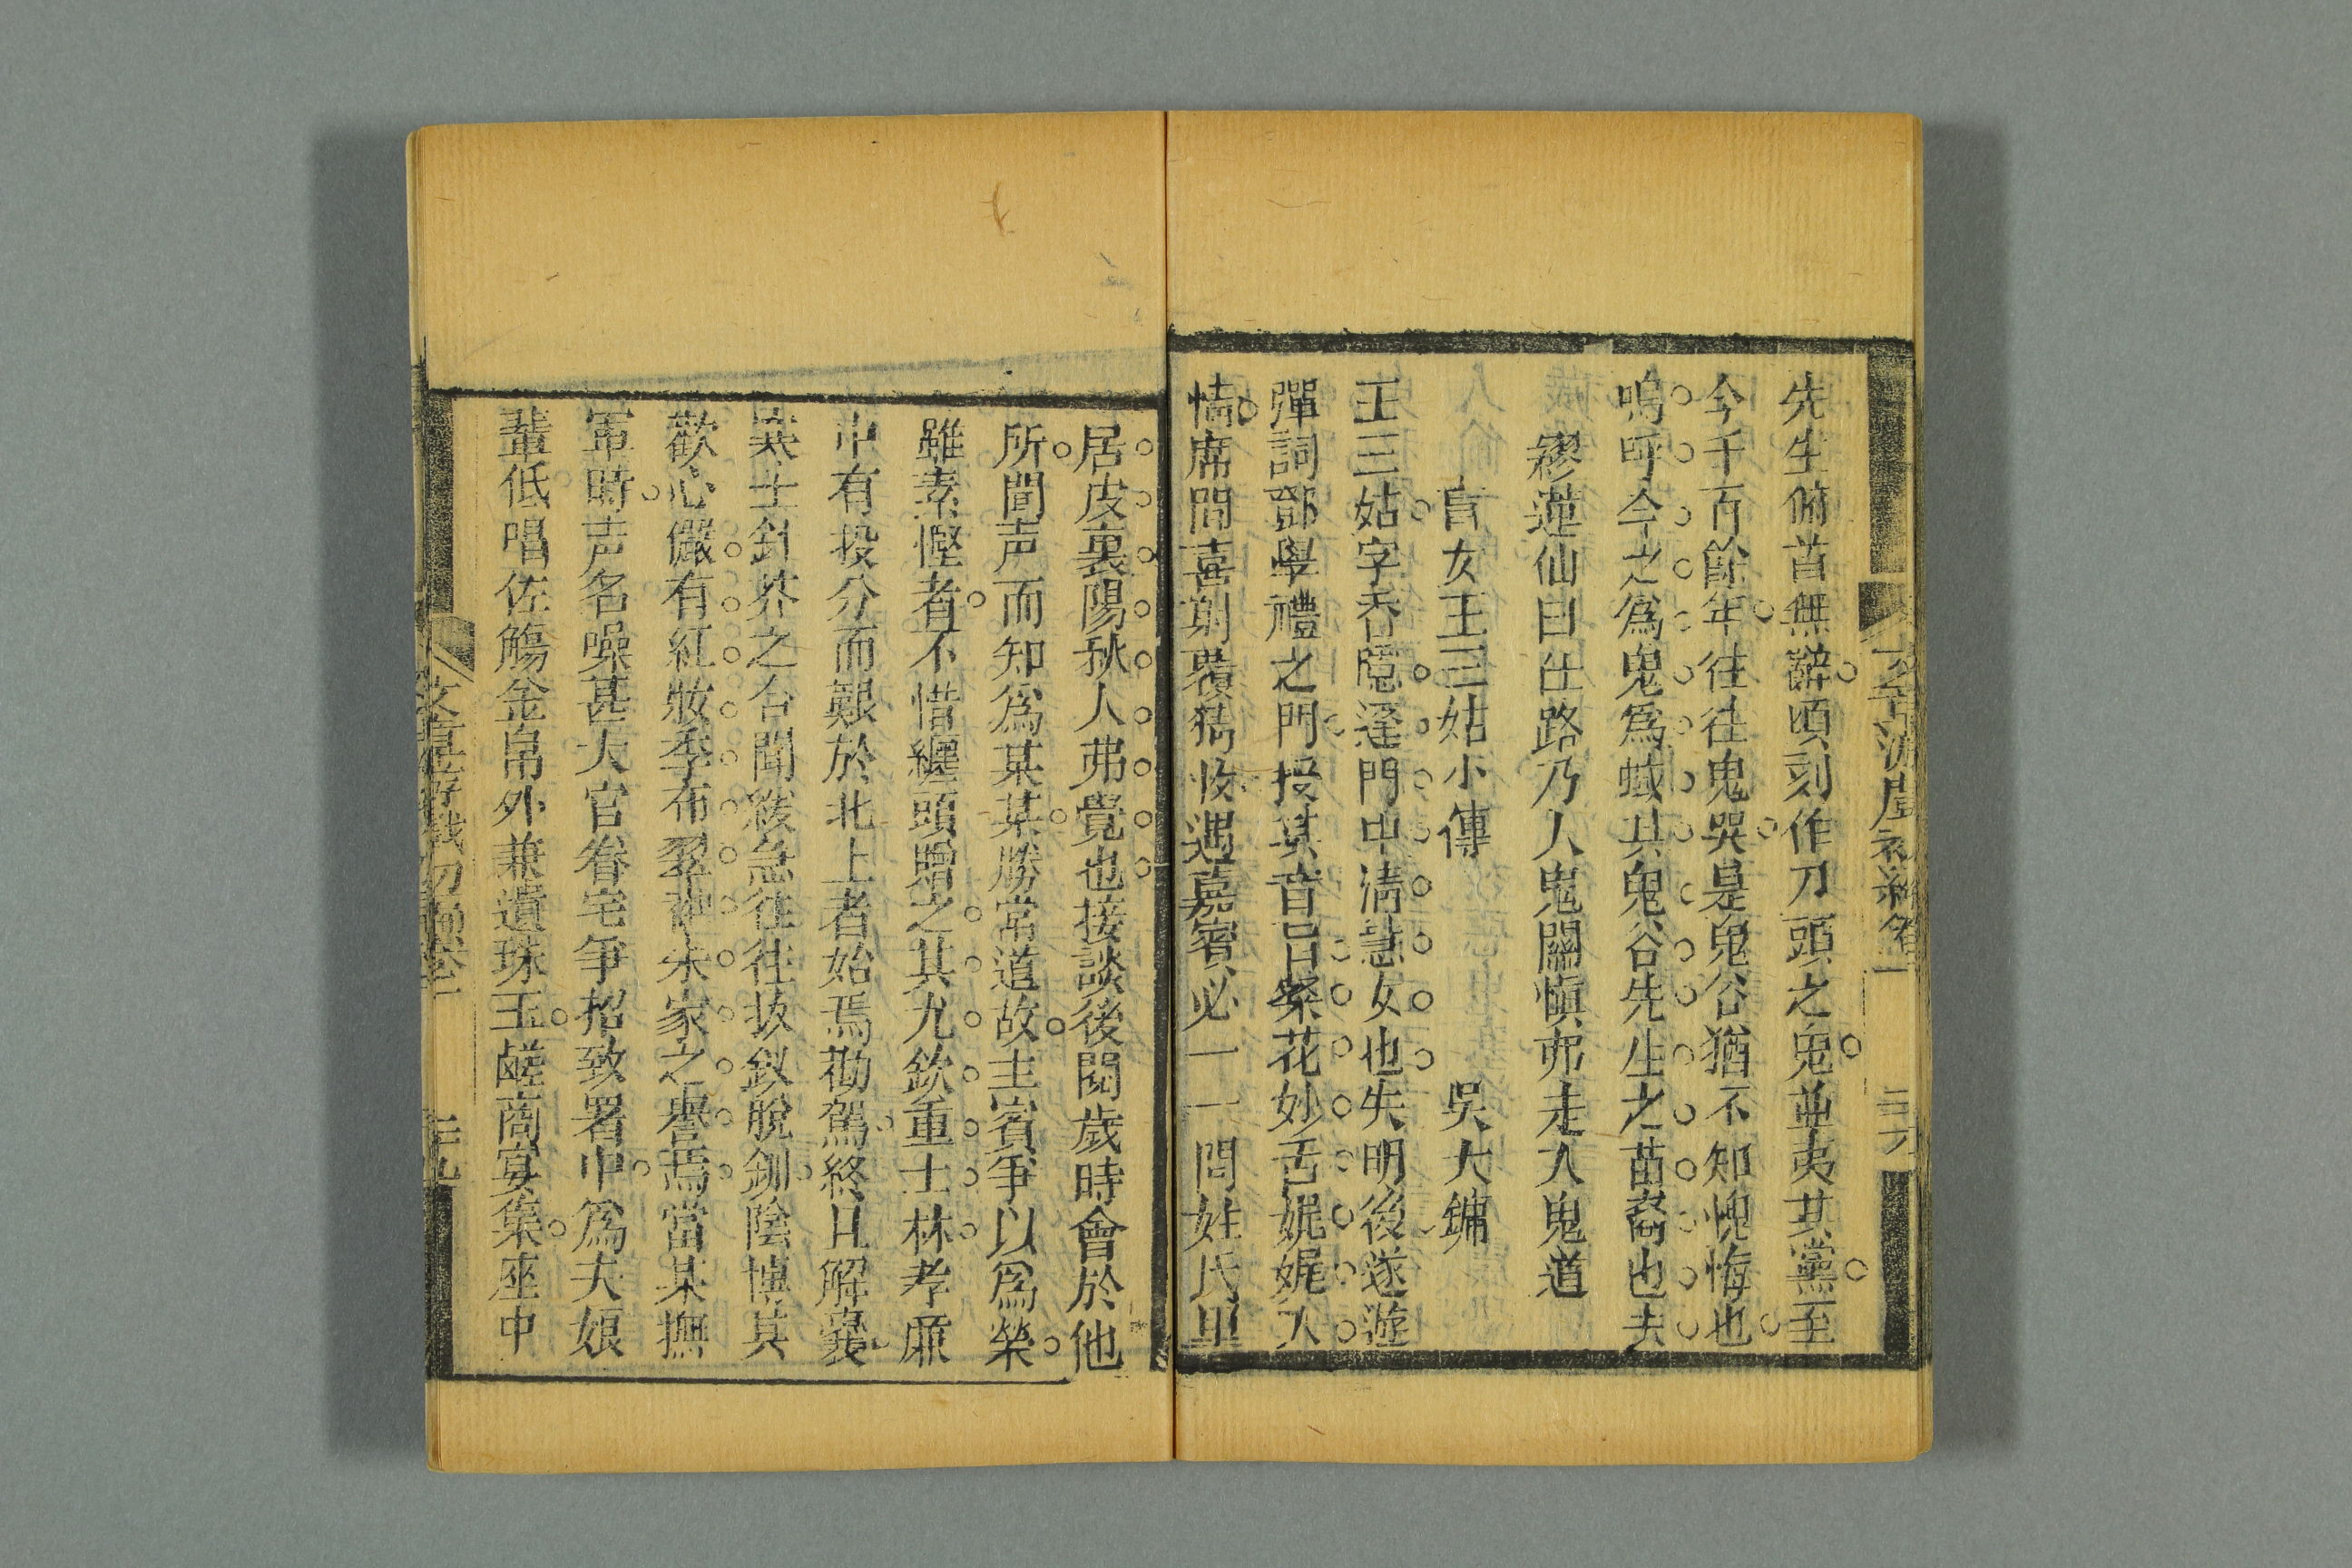 先生俯首無辭頃刻作刀頭之鬼並夷其黨至
今千百餘年往往鬼哭是鬼谷猶不知愧悔也
嗚呼今之爲鬼爲蜮其鬼谷先生之苗裔也夫
繆蓮仙曰仕路乃人鬼關愼弗走入鬼道
盲女王三姑小傳 吳大鏞
王三姑字香隱蓬門中淸慧女也失明後遂遊
彈詞鄧學禮之門投其音吕粲花妙舌娓娓入
情席間喜剔襮猜收遇嘉賓必一一問姓氏里
居皮裏陽秋人弗覺也接談後閱歲時會於他
所聞声而知爲某某勝常道故主賓爭以爲榮
雖素慳者不惜纏頭贈之其尤欽重士林孝廉
中有投分而艱於北上者始焉勸駕終且解囊
寒士針芥之合聞緩急往往抜釵脫釧陰博其
歡心儼有紅妝季布翠袖朱家之譽焉當某撫
軍時声名噪甚大官眷宅爭招致署中爲夫娘
輩低唱佐觴金帛外兼遺珠玉鹺商宴集座中